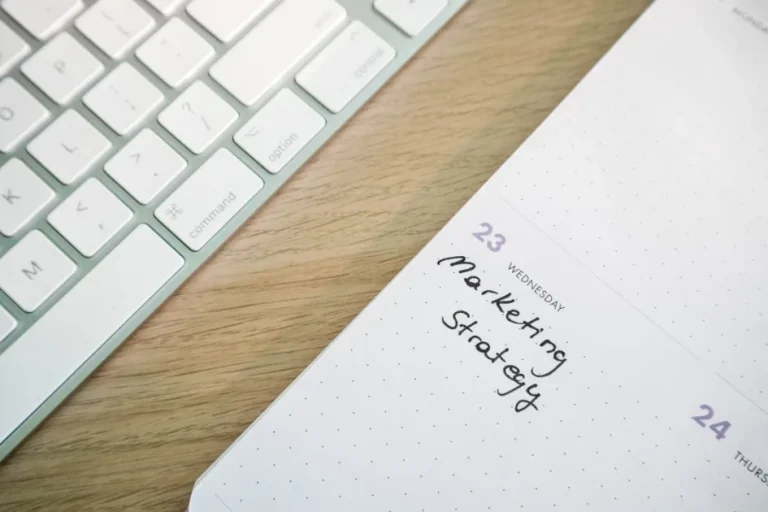 P
O
L
K
M
:
;
?
/
>
.
<
,
control
⌥
option
⌘
command
MONDAY
23
WEDNESDAY
Marketing
Strategy
24
THURS